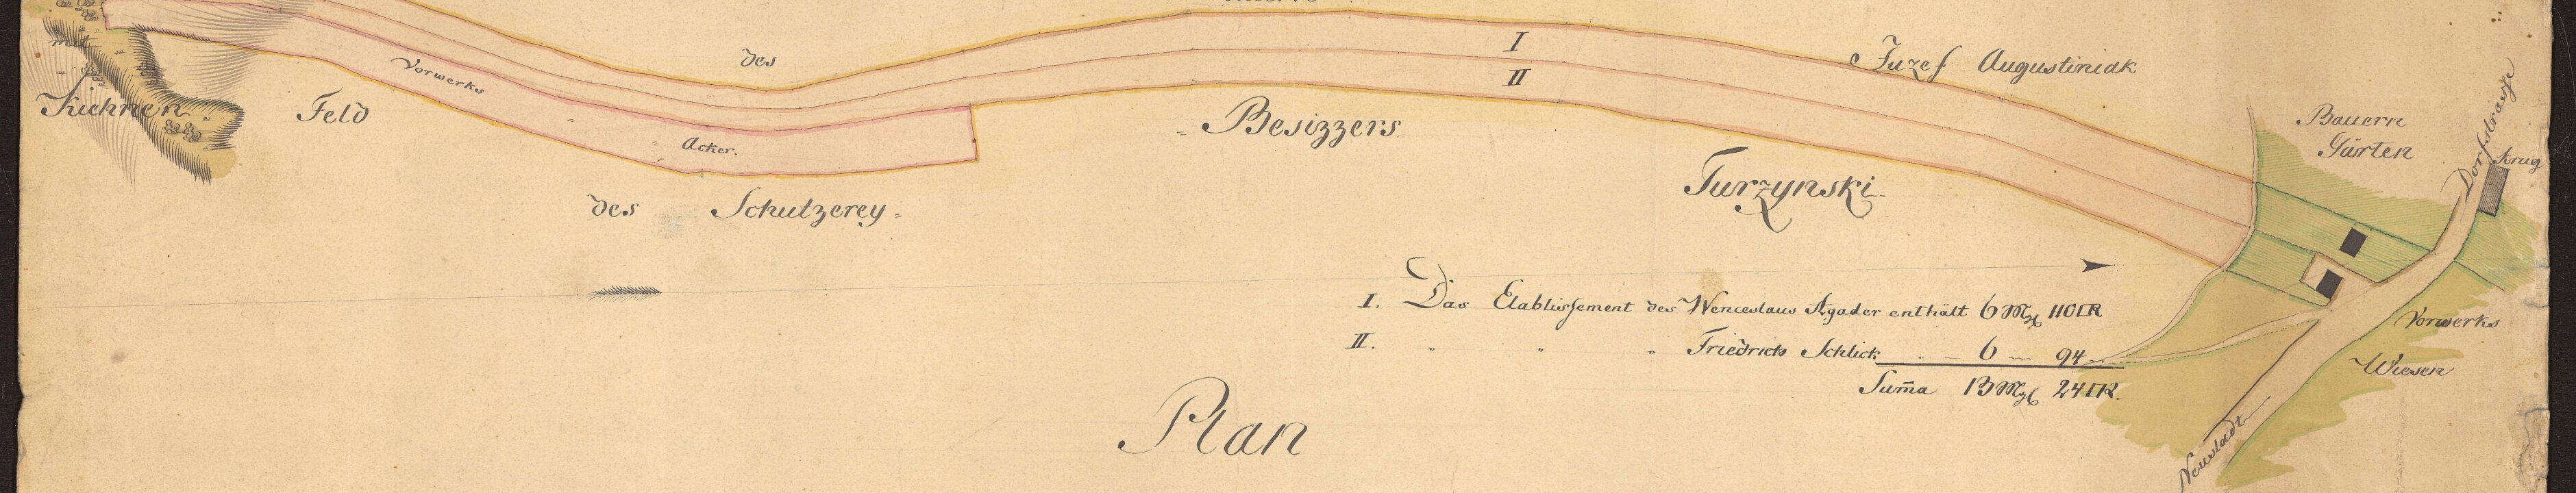 mit
Kiehnen
Feld
Vorwerks
Acker.
des
des Schulzerey
I
II
Besizzers
Juzef Augustiniak
Turzynski
Bauern
Gärten
Dorfstrasse
Krug
Vorwerks
Wiesen
Neustadt
I. Das Etablissement des Wenceslaus Agader enthält 6 Mg 110 □R
II. " " " Friedrich Schlick " — 6 — 94
Sum̄a 13 Mg 24 □R.
Plan